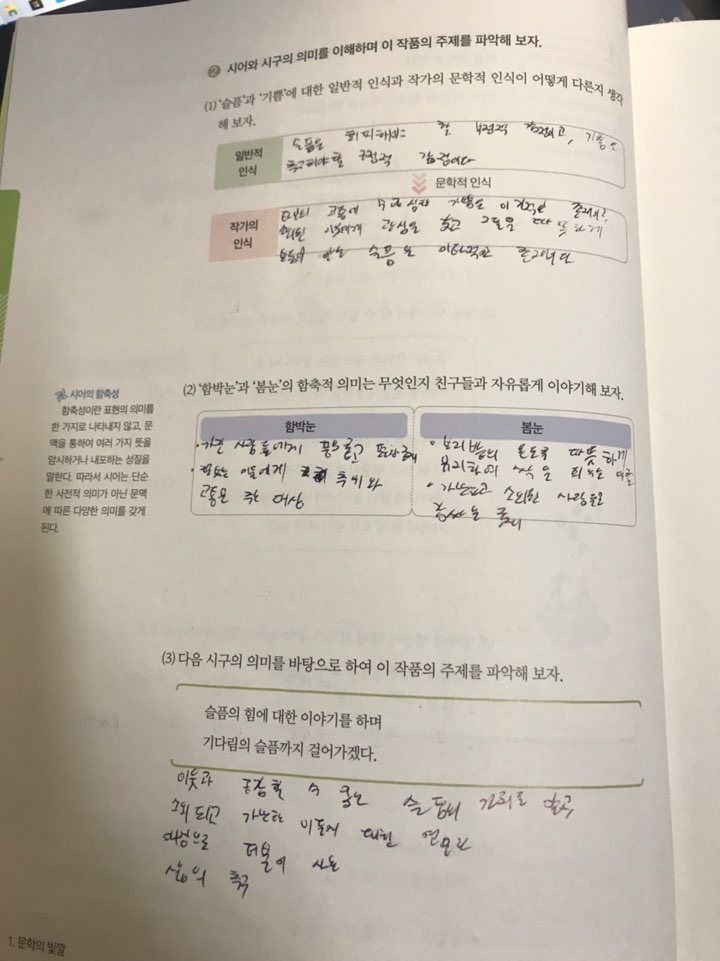 2 시어와 시구의 의미를 이해하며 이 작품의 주제를 파악해 보자.
(1) '슬픔'과 '기쁨'에 대한 일반적 인식과 작가의 문학적 인식이 어떻게 다른지 생각
해 보자.
일반적
인식
슬픔은 회피해야 할 부정적 감정이고, 기쁨은
추구해야할 긍정적 감정이다
문학적 인식
작가의
인식
타인의 고통에 무관심한 기쁨은 이기적인 존재이고,
소외된 이웃에게 관심을 갖고 그들을 따뜻하게
보듬어 안는 슬픔은 이타적인 존재이다
시어의 함축성
함축성이란 표현의 의미를
한 가지로 나타내지 않고, 문
맥을 통하여 여러 가지 뜻을
암시하거나 내포하는 성질을
말한다. 따라서 시어는 단순
한 사전적 의미가 아닌 문맥
에 따른 다양한 의미를 갖게
된다.
(2) '함박눈'과 '봄눈'의 함축적 의미는 무엇인지 친구들과 자유롭게 이야기해 보자.
함박눈
· 가진 사람들에게 풍요롭고
· 이들에게 추위와
고통을 주는 대상
봄눈
· 보리밭의 온도를 따뜻하게
유지하여 싹을
· 가난하고 소외된 사람들을
존재
(3) 다음 시구의 의미를 바탕으로 하여 이 작품의 주제를 파악해 보자.
슬픔의 힘에 대한 이야기를 하며
기다림의 슬픔까지 걸어가겠다.
이웃과 수 있는 슬픔의
소외되고 가난한 이들에 대한 연민과
애정으로 더불어 사는
삶의 추구
1. 문학의 빛깔